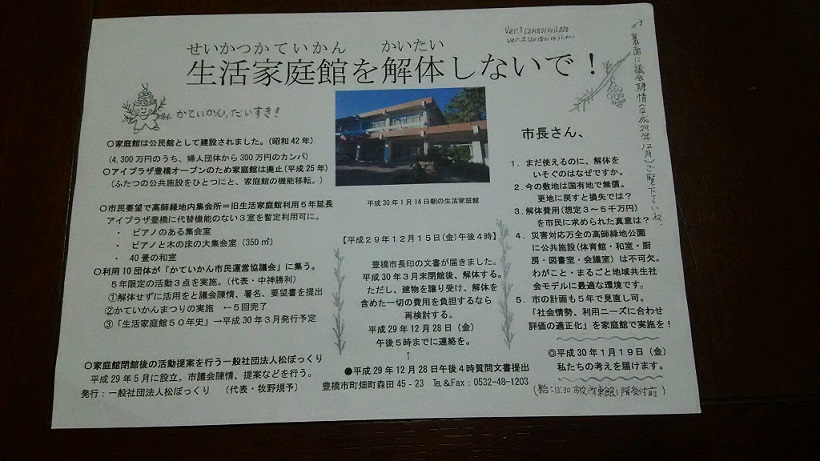 せいかつかていかん　かいたい
生活家庭館を解体しないで！
かていかん、だいすき！
○家庭館は公民館として建設されました。(昭和42年)
(4,300万円のうち、婦人団体から300万円のカンパ)
○アイプラザ豊橋オープンのため家庭館は廃止(平成25年)
(ふたつの公共施設をひとつにと、家庭館の機能移転。)
○市民要望で高師緑地内集会所＝旧生活家庭館利用５年延長
アイプラザ豊橋に代替機能のない３室を暫定利用可に。
・ ピアノのある集会室
・ ピアノと木の床の大集会室（350㎡）
・ 40畳の和室
○利用10団体が「かていかん市民運営協議会」に集う。
５年限定の活動３点を実施。(代表・中神勝利)
①解体せずに活用をと議会陳情、署名、要望書を提出
②かていかんまつりの実施 ←５回完了
③「生活家庭館５０年史」→平成30年３月発行予定
○家庭館閉館後の活動提案を行う一般社団法人松ぼっくり
平成29年５月に設立。市議会陳情、提案などを行う。
発行：一般社団法人松ぼっくり　（代表・牧野規予）
平成30年1月14日朝の生活家庭館
【平成２９年１２月１５日(金)午後４時】
豊橋市長印の文書が届きました。
平成30年３月末閉館後、解体する。
ただし、建物を譲り受け、解体を
含めた一切の費用を負担するなら
再検討する。
平成29年12月28日（金）
午後５時までに連絡を。
↑
●平成29年12月28日午後４時質問文書提出
豊橋市町畑町森田45－23　℡＆Fax：0532-48-1203
市長さん、
１．まだ使えるのに、解体を
いそぐのはなぜですか。
２．今の敷地は国有地で無償。
更地に戻すと損失では？
３．解体費用(想定３～５千万円)
を市民に求められた真意は？
４．災害対応万全の高師緑地公園
に公共施設(体育館・和室・厨
房・図書室・会議室）は不可欠。
わがこと・まるごと地域共生社
会モデルに最適な環境です。
５．市の計画も５年で見直し可。
「社会情勢、利用ニーズに合わせ
評価の適正化」を家庭館で実施を！
◎平成30年１月19日（金）
私たちの考えを届けます。
裏面に議会陳情(平成29年12月)ご覧下さいね